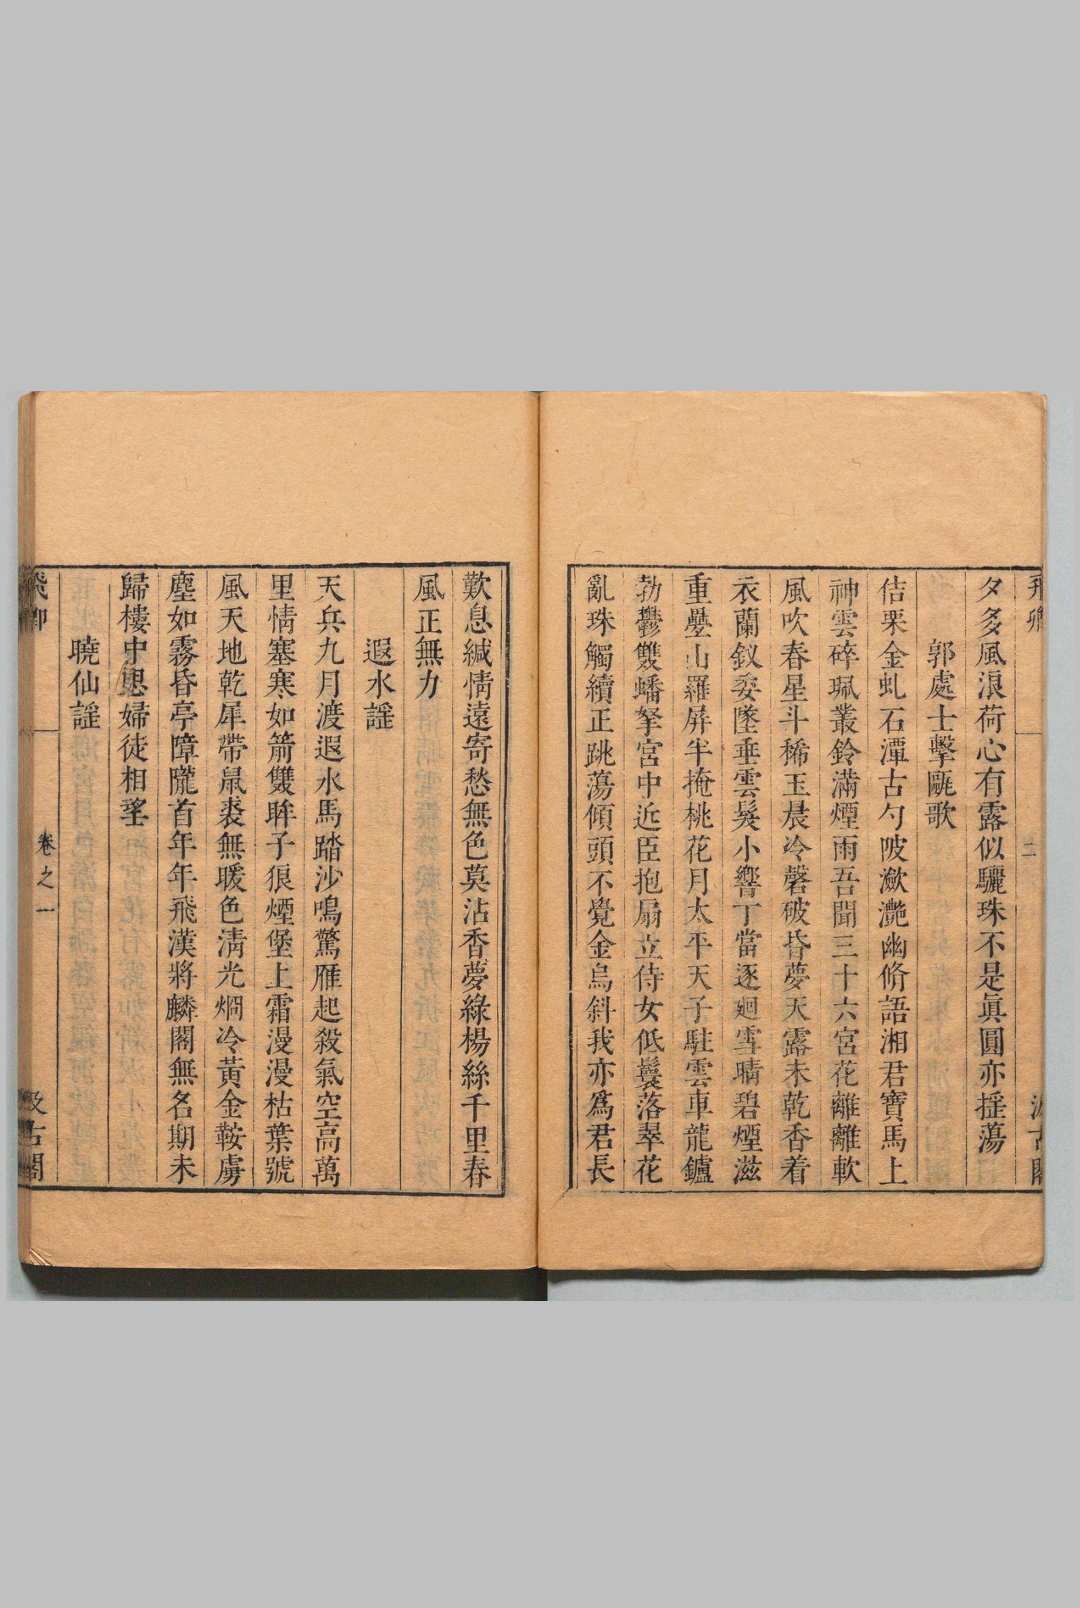 飛卿 二 汲古閣
夕多風浪荷心有露似驪珠不是眞圓亦揺蕩
郭處士擊甌歌
佶栗金虬石潭古勺陂瀲灔幽脩語湘君寶馬上
神雲碎珮叢鈴滿煙雨吾聞三十六宮花離離軟
風吹春星斗稀玉晨冷磬破昏夢天露未乾香着
衣蘭釵委墜垂雲髮小響丁當逐廻雪晴碧煙滋
重疊山羅屏半掩桃花月太平天子駐雲車龍鑪
勃鬱雙蟠拏宮中近臣抱扇立侍女低鬟落翠花
亂珠觸續正跳蕩傾頭不覺金烏斜我亦爲君長
歎息緘情遠寄愁無色莫沾香夢綠楊絲千里春
風正無力
遐水謡
天兵九月渡遐水馬踏沙鳴驚雁起殺氣空高萬
里情塞寒如箭雙眸子狼煙堡上霜漫漫枯葉號
風天地乾犀帶鼠裘無暖色清光烱冷黃金鞍虜
塵如霧昏亭障隴首年年飛漢將麟閣無名期未
歸樓中思婦徒相望
曉仙謡
飛卿 卷之一 汲古閣